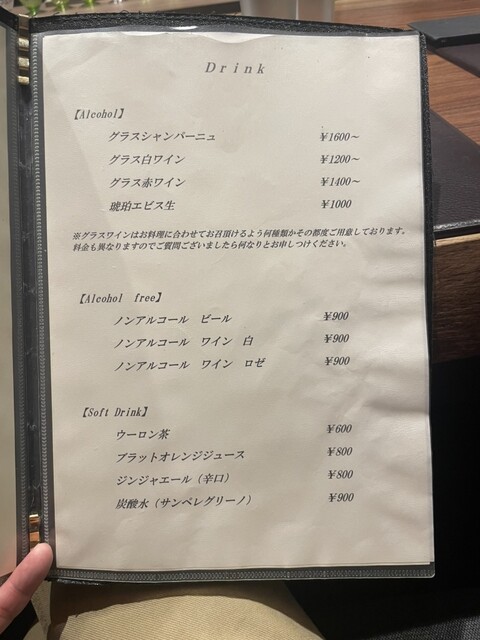 Drink
【Alcohol】
グラスシャンパーニュ ¥1600～
グラス白ワイン ¥1200～
グラス赤ワイン ¥1400～
琥珀エビス生 ¥1000
※グラスワインはお料理に合わせてお召頂けるよう何種類かその都度ご用意しております。
料金も異なりますのでご質問ございましたら何なりとお申しつけください。
【Alcohol free】
ノンアルコール ビール ¥900
ノンアルコール ワイン 白 ¥900
ノンアルコール ワイン ロゼ ¥900
【Soft Drink】
ウーロン茶 ¥600
ブラットオレンジジュース ¥800
ジンジャエール（辛口） ¥800
炭酸水（サンペレグリーノ） ¥900